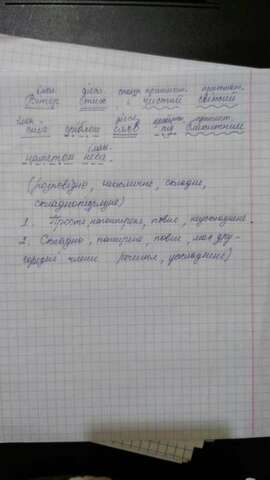 імен. дієсл. сполуч. прикметн. прикметн.
Вітер стих, і чистий свіжий
імен. дієсл. прикметн.
сніг сяяв під блакитним
імен.
наметом неба.
(розповідне, неоклично, складне,
складнопідрядне)
1. Просте, непоширене, повне, неускладнене.
2. Складно, поширене, повне, має дру-
горядні члени речення, ускладнене)